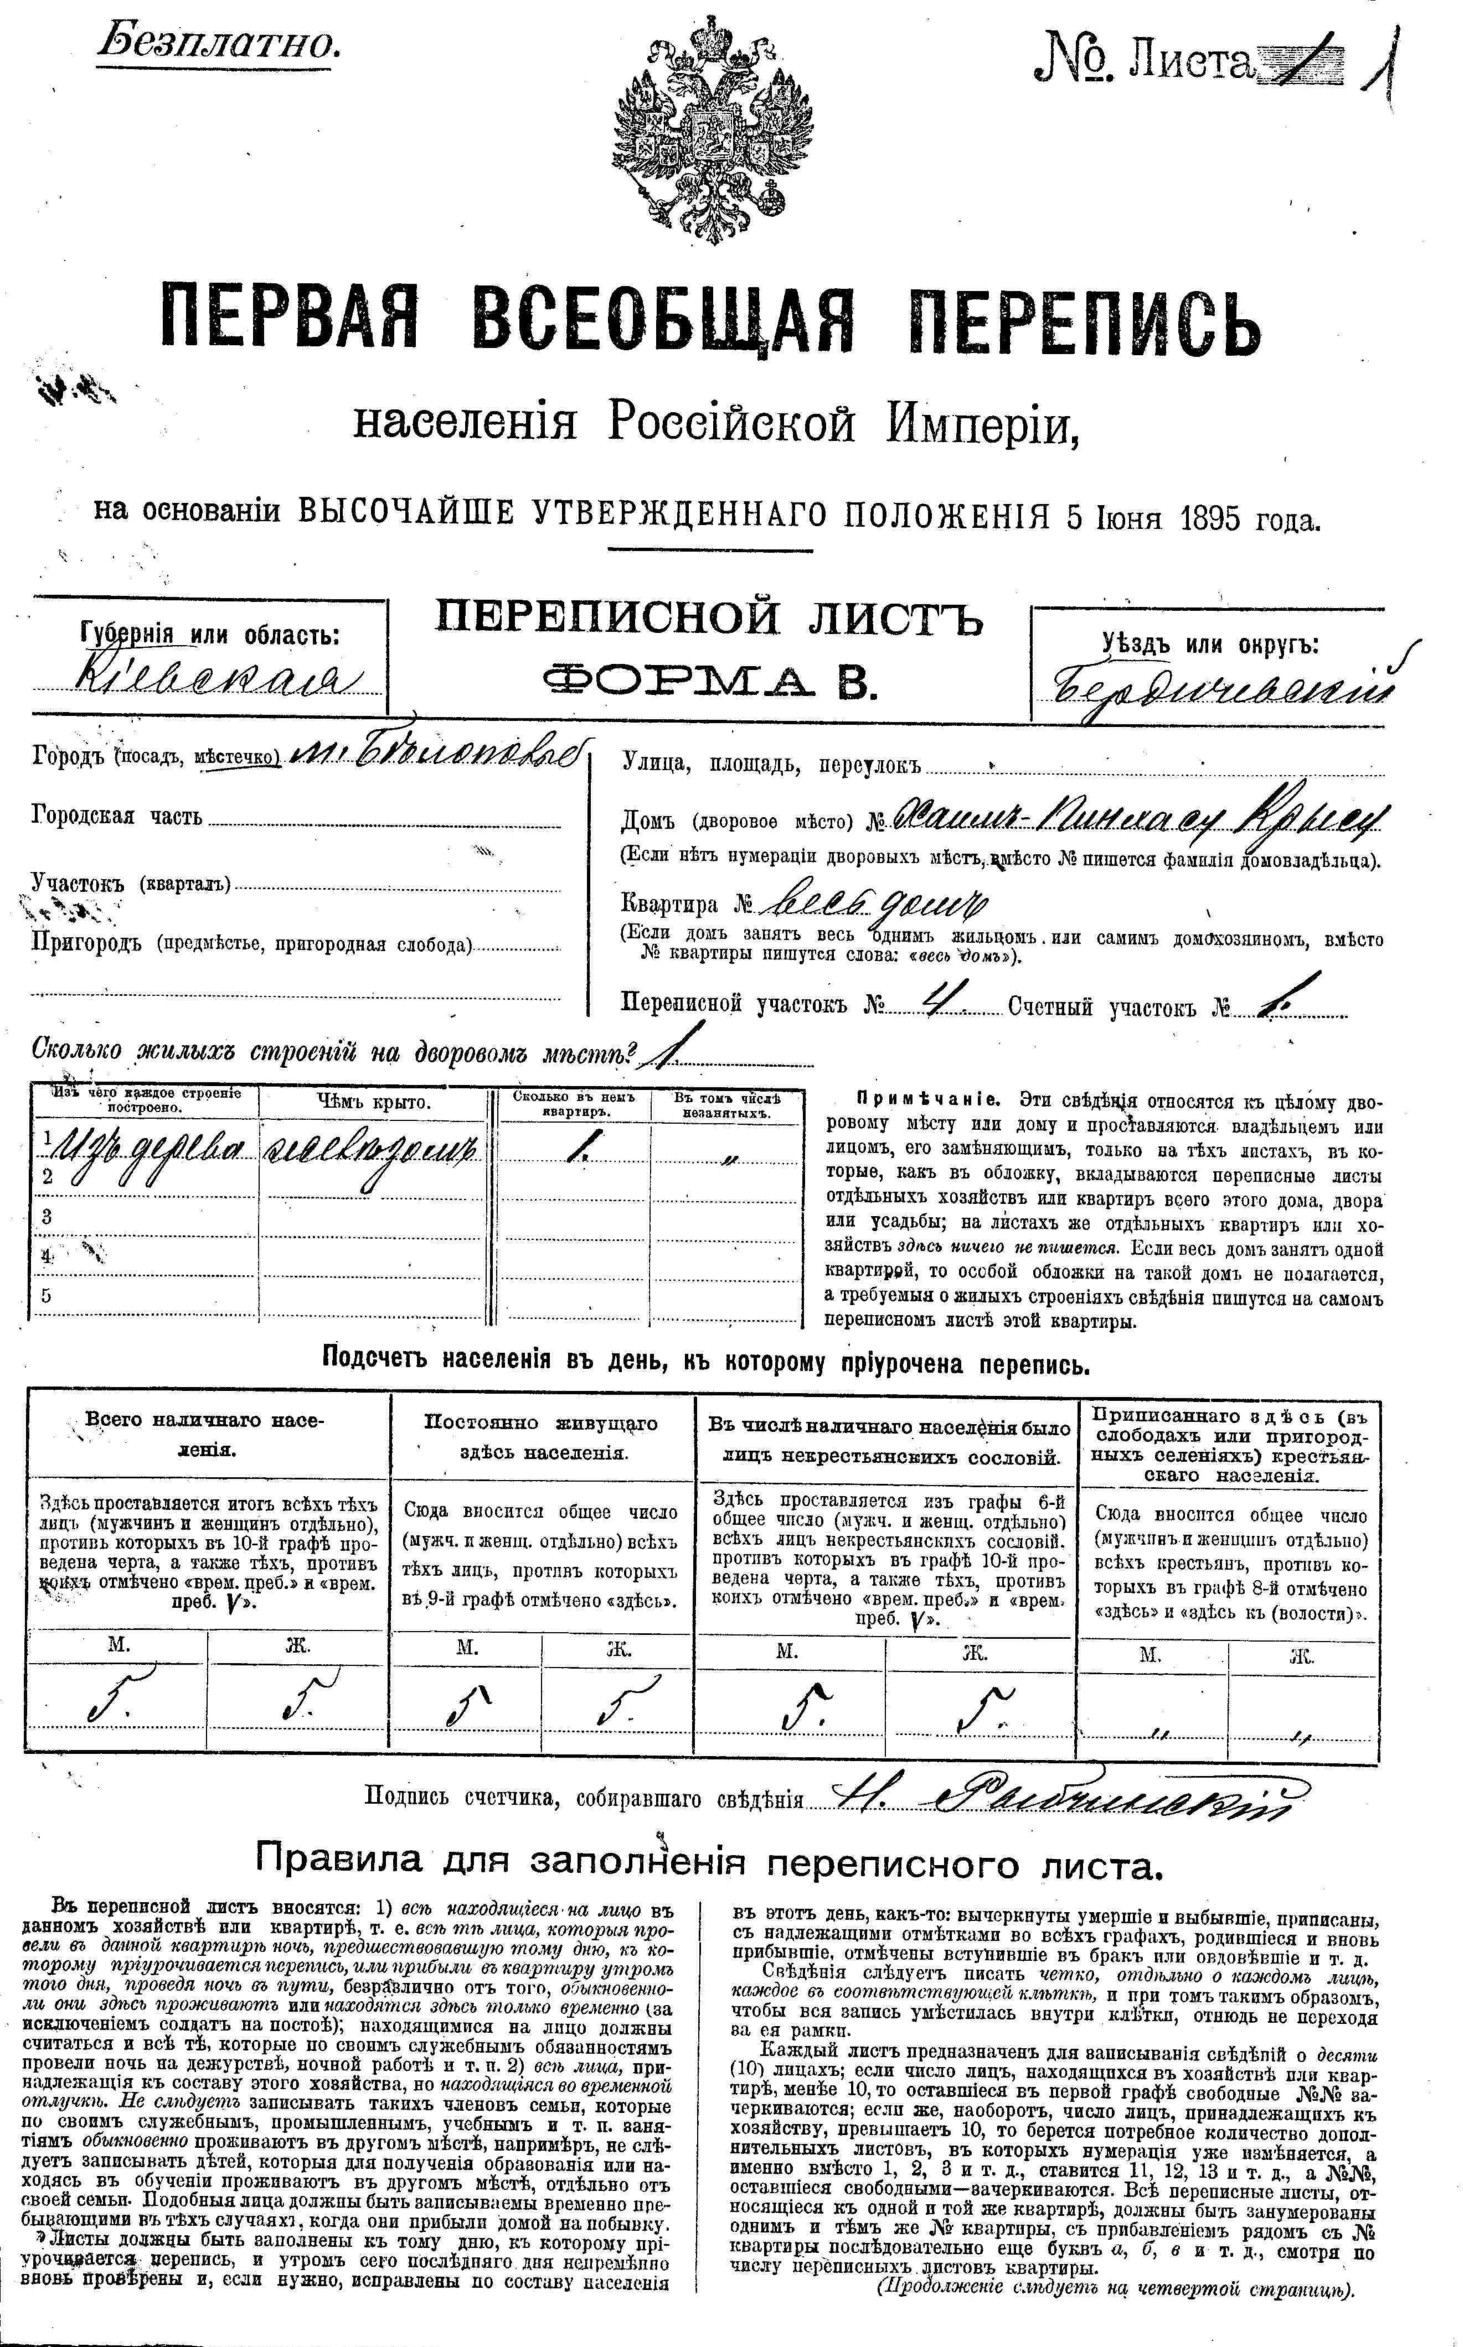 Безплатно.
№. Листа 1 1
ПЕРВАЯ ВСЕОБЩАЯ ПЕРЕПИСЬ
населенія Россійской Имперіи,
на основаніи ВЫСОЧАЙШЕ УТВЕРЖДЕННАГО ПОЛОЖЕНІЯ 5 Іюня 1895 года.
Губернія или область:
Кіевская
ПЕРЕПИСНОЙ ЛИСТЪ
ФОРМА В.
Уѣздъ или округъ:
Бердичевскій
Городъ (посадъ, мѣстечко) м. Бѣлополье
Городская часть
Участокъ (кварталъ)
Пригородъ (предмѣстье, пригородная слобода)
Улица, площадь, переулокъ
Домъ (дворовое мѣсто) № Хаимъ-Пинхасу Крысу
(Если нѣтъ нумераціи дворовыхъ мѣстъ, вмѣсто № пишется фамилія домовладѣльца).
Квартира № весь домъ
(Если домъ занятъ весь однимъ жильцомъ или самимъ домохозяиномъ, вмѣсто
№ квартиры пишутся слова: «весь домъ»).
Переписной участокъ № 4. Счетный участокъ № 1.
Сколько жилыхъ строеній на дворовомъ мѣстѣ? 1.
Изъ чего каждое строеніе
построено.
Чѣмъ крыто.
Сколько въ немъ
квартиръ.
Въ томъ числѣ
незанятыхъ.
1 Изъ дерева желѣзомъ 1. „
2
3
4
5
Примѣчаніе. Эти свѣдѣнія относятся къ цѣлому дво-
ровому мѣсту или дому и проставляются владѣльцемъ или
лицомъ, его замѣняющимъ, только на тѣхъ листахъ, въ ко-
торые, какъ въ обложку, вкладываются переписные листы
отдѣльныхъ хозяйствъ или квартиръ всего этого дома, двора
или усадьбы; на листахъ же отдѣльныхъ квартиръ или хо-
зяйствъ здѣсь ничего не пишется. Если весь домъ занятъ одной
квартирой, то особой обложки на такой домъ не полагается,
а требуемыя о жилыхъ строеніяхъ свѣдѣнія пишутся на самомъ
переписномъ листѣ этой квартиры.
Подсчетъ населенія въ день, къ которому пріурочена перепись.
Всего наличнаго насе-
ленія.
Здѣсь проставляется итогъ всѣхъ тѣхъ
лицъ (мужчинъ и женщинъ отдѣльно),
противъ которыхъ въ 10-й графѣ про-
ведена черта, а также тѣхъ, противъ
коихъ отмѣчено «врем. преб.» и «врем.
преб. V».
Постоянно живущаго
здѣсь населенія.
Сюда вносится общее число
(мужч. и женщ. отдѣльно) всѣхъ
тѣхъ лицъ, противъ которыхъ
въ 9-й графѣ отмѣчено «здѣсь».
Въ числѣ наличнаго населенія было
лицъ некрестьянскихъ сословій.
Здѣсь проставляется изъ графы 6-й
общее число (мужч. и женщ. отдѣльно)
всѣхъ лицъ некрестьянскихъ сословій.
противъ которыхъ въ графѣ 10-й про-
ведена черта, а также тѣхъ, противъ
коихъ отмѣчено «врем. преб.» и «врем.
преб. V».
Приписаннаго здѣсь (въ
слободахъ или пригород-
ныхъ селеніяхъ) крестьян-
скаго населенія.
Сюда вносится общее число
(мужчинъ и женщинъ отдѣльно)
всѣхъ крестьян, противъ ко-
торыхъ въ графѣ 8-й отмѣчено
«здѣсь» и «здѣсь къ (волости)».
М. Ж. М. Ж. М. Ж. М. Ж.
5. 5. 5 5. 5. 5. „ „
Подпись счетчика, собиравшаго свѣдѣнія Н. Рыбчинскій
Правила для заполненія переписного листа.
Въ переписной листъ вносятся: 1) всѣ находящіеся на лицо въ
данномъ хозяйствѣ или квартирѣ, т. е. всѣ тѣ лица, которыя про-
вели въ данной квартирѣ ночь, предшествовавшую тому дню, къ ко-
торому пріурочивается перепись, или прибыли въ квартиру утромъ
того дня, проведя ночь въ пути, безразлично отъ того, обыкновенно-
ли они здѣсь проживаютъ или находятся здѣсь только временно (за
исключеніемъ солдатъ на постоѣ); находящимися на лицо должны
считаться и всѣ тѣ, которые по своимъ служебнымъ обязанностямъ
провели ночь на дежурствѣ, ночной работѣ и т. п. 2) всѣ лица, при-
надлежащія къ составу этого хозяйства, но находящіяся во временной
отлучкѣ. Не слѣдуетъ записывать такихъ членовъ семьи, которые
по своимъ служебнымъ, промышленнымъ, учебнымъ и т. п. заня-
тіямъ обыкновенно проживаютъ въ другомъ мѣстѣ, напримѣръ, не слѣ-
дуетъ записывать дѣтей, которыя для полученія образованія или на-
ходясь въ обученіи проживаютъ въ другомъ мѣстѣ, отдѣльно отъ
своей семьи. Подобныя лица должны быть записываемы временно пре-
бывающими въ тѣхъ случаяхъ, когда они прибыли домой на побывку.
Листы должны быть заполнены къ тому дню, къ которому прі-
урочивается перепись, и утромъ сего послѣдняго дня непремѣнно
вновь провѣрены и, если нужно, исправлены по составу населенія
въ этотъ день, какъ-то: вычеркнуты умершіе и выбывшіе, приписаны,
съ надлежащими отмѣтками во всѣхъ графахъ, родившіеся и вновь
прибывшіе, отмѣчены вступившіе въ бракъ или овдовѣвшіе и т. д.
Свѣдѣнія слѣдуетъ писать четко, отдѣльно о каждомъ лицѣ,
каждое въ соотвѣтствующей клѣткѣ, и при томъ такимъ образомъ,
чтобы вся запись умѣстилась внутри клѣтки, отнюдь не переходя
за ея рамки.
Каждый листъ предназначенъ для записыванія свѣдѣній о десяти
(10) лицахъ; если число лицъ, находящихся въ хозяйствѣ или квар-
тирѣ, менѣе 10, то оставшіеся въ первой графѣ свободные №№ за-
черкиваются; если же, наоборотъ, число лицъ, принадлежащихъ къ
хозяйству, превышаетъ 10, то берется потребное количество допол-
нительныхъ листовъ, въ которыхъ нумерація уже измѣняется, а
именно вмѣсто 1, 2, 3 и т. д., ставится 11, 12, 13 и т. д., а №№,
оставшіеся свободными—зачеркиваются. Всѣ переписные листы, от-
носящіеся къ одной и той же квартирѣ, должны быть занумерованы
однимъ и тѣмъ же № квартиры, съ прибавленіемъ рядомъ съ №
квартиры послѣдовательно еще буквъ а, б, в и т. д., смотря по
числу переписныхъ листовъ квартиры.
(Продолженіе слѣдуетъ на четвертой страницѣ).